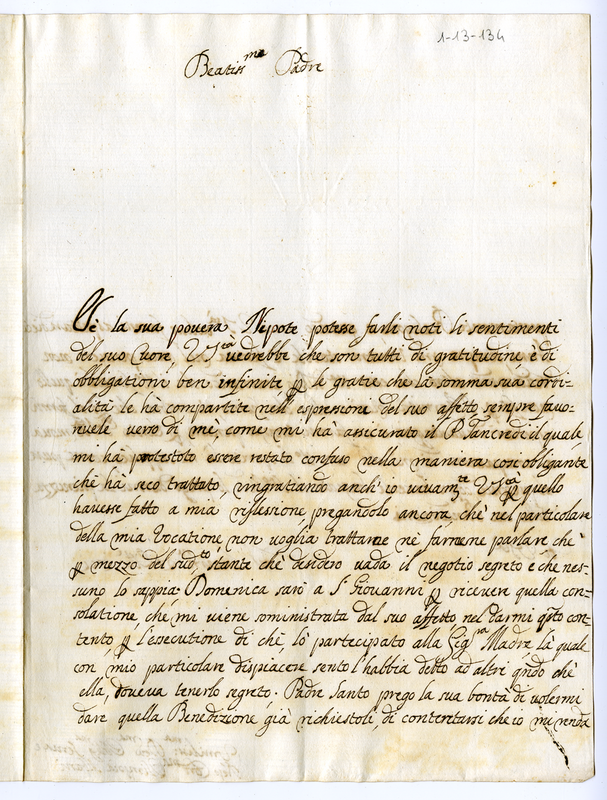 1-13-134
Beatiss.me Padre
Sè la sua povera Nepote potesse farli noti li sentimenti
del suo Cuore, V. S.tà vedrebbe che son tutti di gratitudine, è di
obbligationi ben infinite p le gratie che la somma sua cordi-
alità le hà compartite nell' espressioni del suo affetto sempre favo-
revele verso di mè, come mi hà assicurato il P. Tancredi il quale
mi hà protestoto essere restato confuso nella maniera così obligante
chè hà seco trattato, ringratiando anch' io vivam.te V. S.tà p quello
havesse fatto a mia riflessione pregandolo ancora, chè nel particolare
della mia Vocatione non voglia trattarne nè farmene parlare chè
p mezzo del sud.to stante chè desidero vada il negotio segreto e che nes-
suno lo sappia. Domenica sarò a S. Giovanni p ricevere quella con-
solatione, chè mi viene soministrata dal suo affetto nel darmi q.sto con-
tento, p l'esecutione di chè, lò partecipato alla Sig.ra Madre là quale
con mio particolare dispiacere sento l'habbia detto ad altri q.ndo chè
ella, doveva tenerlo segreto. Padre Santo prego la sua bontà di volermi
dare quella Benedizione già richiestoli, di contentarsi che io mi renda